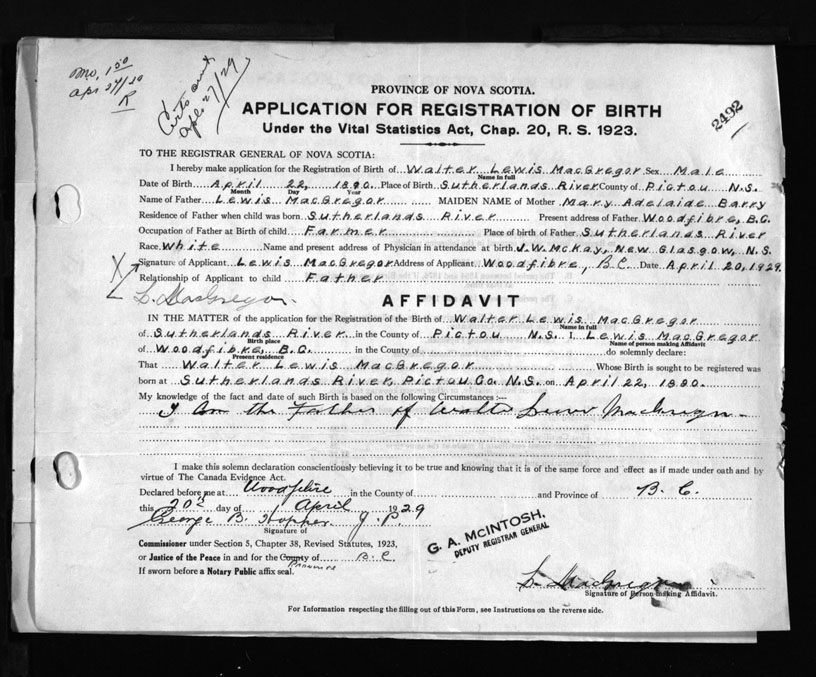 mo, 1.50
apr 27/29
R
Certs sent
apl. 27/29
2492
PROVINCE OF NOVA SCOTIA.
APPLICATION FOR REGISTRATION OF BIRTH
Under the Vital Statistics Act, Chap. 20, R. S. 1923.
TO THE REGISTRAR GENERAL OF NOVA SCOTIA:
I hereby make application for the Registration of Birth of Walter Lewis MacGregor Sex Male
Name in full
Date of Birth April 22, 1890. Place of Birth Sutherlands River County of Pictou N.S.
Month Day Year
Name of Father Lewis MacGregor MAIDEN NAME of Mother Mary Adelaide Barry
Residence of Father when child was born Sutherlands River Present address of Father Woodfibre, B.C.
Occupation of Father at Birth of child Farmer Place of birth of Father Sutherlands River
Race White Name and present address of Physician in attendance at birth J. W. McKay, New Glasgow, N.S.
Signature of Applicant Lewis MacGregor Address of Applicant Woodfibre, B.C. Date April 20, 1929.
Relationship of Applicant to child Father
X L. MacGregor.
AFFIDAVIT
IN THE MATTER of the application for the Registration of the Birth of Walter Lewis MacGregor
Name in full
of Sutherlands River in the County of Pictou N.S. I Lewis MacGregor
Birth place Name of person making Affidavit
of Woodfibre, B.C. in the County of do solemnly declare:
Present residence
That Walter Lewis MacGregor Whose Birth is sought to be registered was
born at Sutherlands River, Pictou Co. N.S. on April 22, 1890.
My knowledge of the fact and date of such Birth is based on the following Circumstances :—
I am the Father of Walter Lewis MacGregor
I make this solemn declaration conscientiously believing it to be true and knowing that it is of the same force and effect as if made under oath and by
virtue of The Canada Evidence Act.
Declared before me at Woodfibre in the County of and Province of B. C.
this 20th day of April 1929
George B. J. P.
Signature of
G. A. McINTOSH,
DEPUTY REGISTRAR GENERAL
Commissioner under Section 5, Chapter 38, Revised Statutes, 1923,
or Justice of the Peace in and for the County of B C
Province
If sworn before a Notary Public affix seal.
L. MacGregor
Signature of Person making Affidavit.
For Information respecting the filling out of this Form, see Instructions on the reverse side.